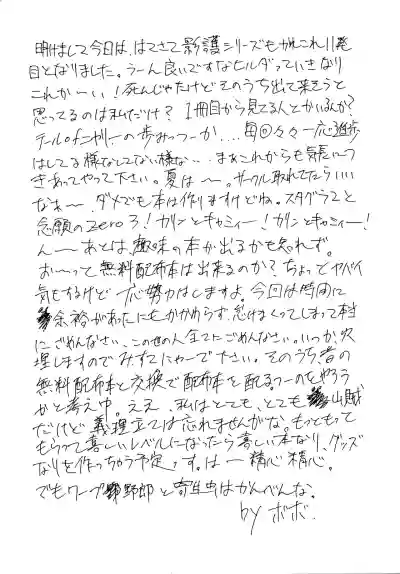 明けまして今日は、はてさて影護シリーズもかれこれ11発
目となりました。うーん良いですなヒルダっていきなり
これかーい!死んじゃたけどそのうち出て来そうと
思ってるのは私だけ?1冊目から見てる人とかいるんか?
テールofニャリーの歩みっつーか....毎回々々一応進歩
はしてる様なしてない様な...まぁこれからも気長につ
きあってやって下さい。夏は〜。サークル取れてたらいい
なぁ〜ダメでも本は作りますけどね。スタグラ2と
念願のZero3!カリンとキャミィー!カリンとキャミィー!
ん〜あとは趣味の本が出るかも知れず。
お〜って無料配布本は出来るのか?ちょっとヤバイ
気もするけど一応努力はしますよ。今回は時間に
余裕があったにもかかわらず怠けまくってしまって本当
にごめんなさい、この世の人全てにごめんなさい。いつか穴
埋しますのでみすてにゃーで下さい。そのうち、昔の
無料配布本と交換で配布本を配るつーのをやろう
かと考え中。ええ、私はとても、とても山賊
だけど義理立ては忘れませんがな。もっともって
もらって喜しいレベルになったら喜しい本なり、グッズ
なりを作っちゃう予定っす。は〜精心精心。
でもワープ野郎と寄生虫はかんべんな。
by ボボ.